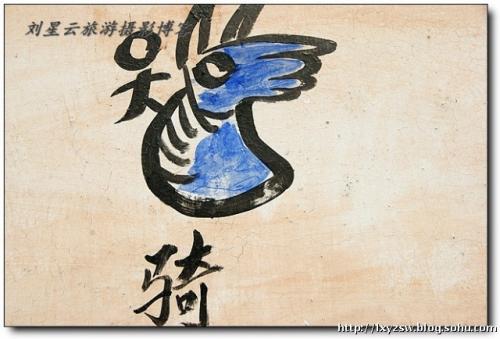 刘星云旅游摄影博客
骑
http://lxyzsw.blog.sohu.com